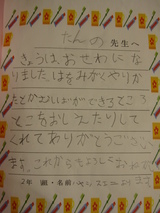 たんの先生へ
きょうは、おせわにな
りました。はをみがくやりか
たとか
ができるところ
とこをおしえたりして
くれてありがとうござい
ます。これからもよろしくおねがい
2年 組・名前